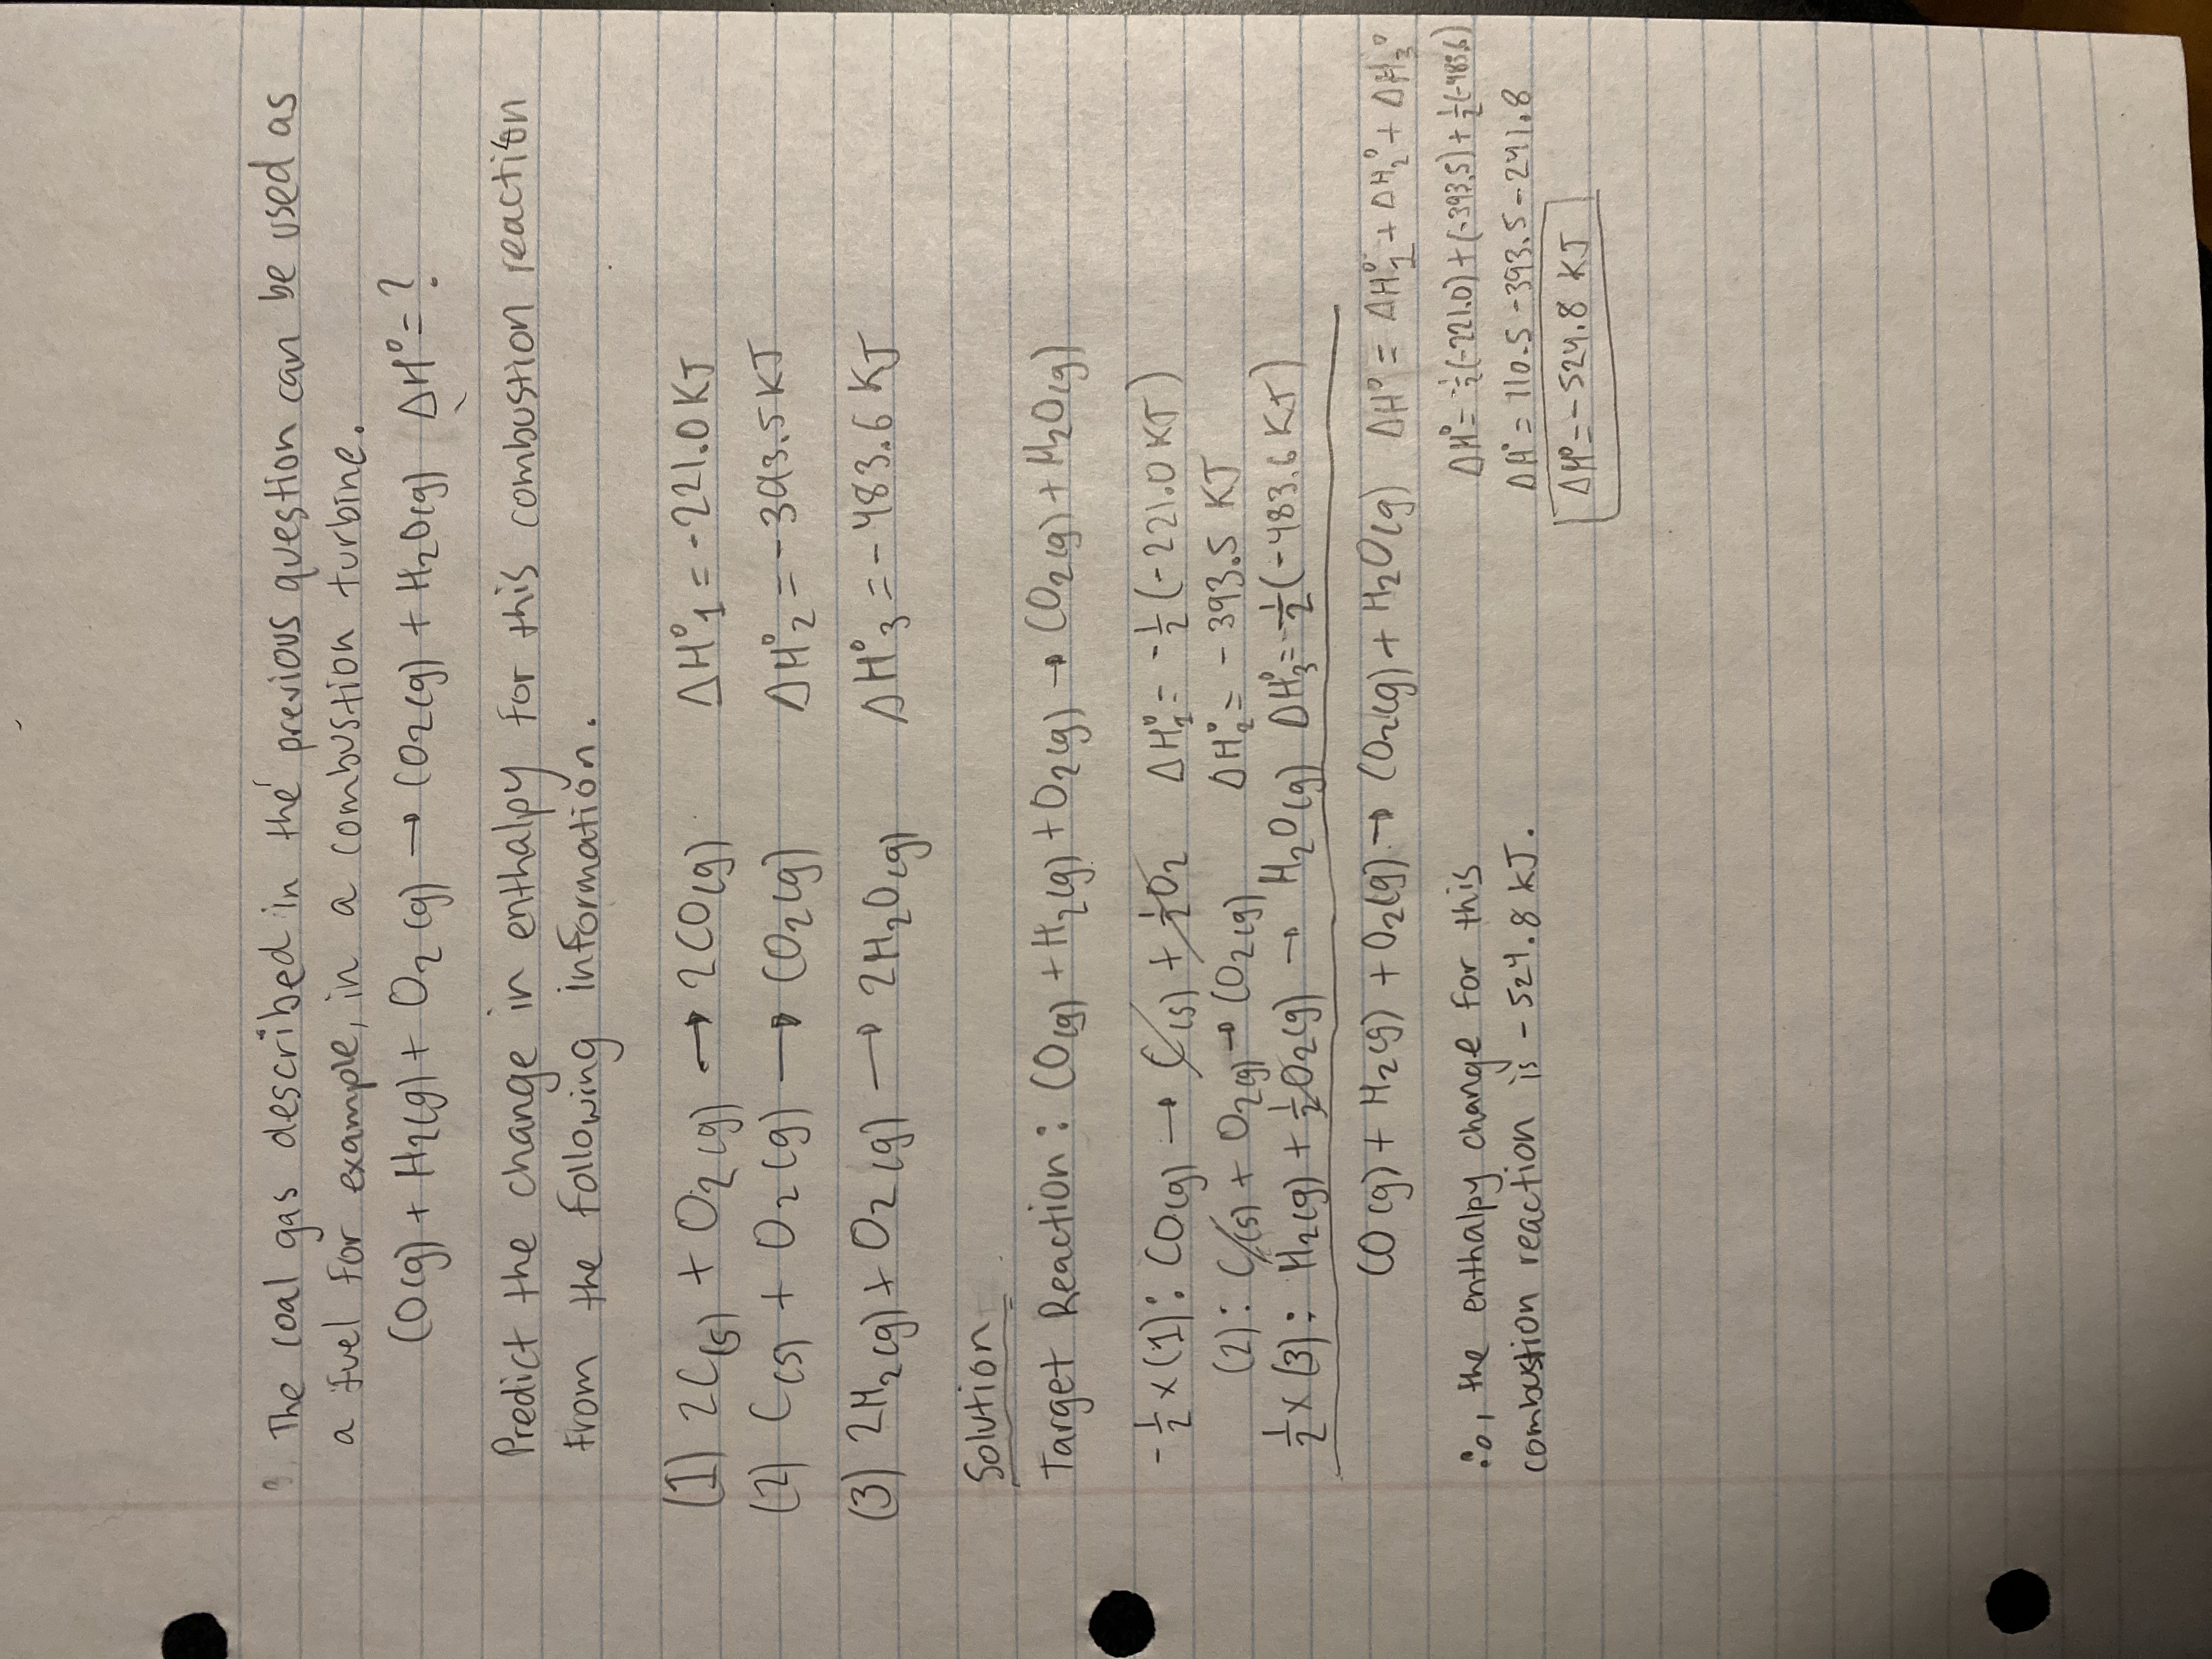 The coal gas described in the previous question can be used as
a fuel for example, in a combustion turbine.
CO(g) + H₂(g) + O₂(g) → CO₂(g) + H₂O(g) ΔH° = ?
Predict the change in enthalpy for this combustion reaction
from the following information.
(1) 2C(s) + O₂(g) → 2CO(g) ΔH°₁ = -221.0 KJ
(2) C(s) + O₂(g) → CO₂(g) ΔH°₂ = -393.5 KJ
(3) 2H₂(g) + O₂(g) → 2H₂O(g) ΔH°₃ = -483.6 KJ
Solution
Target Reaction: CO(g) + H₂(g) + O₂(g) → CO₂(g) + H₂O(g)
-½ x (1): CO(g) → C(s) + ½O₂ ΔH°₁ = -½(-221.0 KJ)
(2): C(s) + O₂(g) → CO₂(g) ΔH°₂ = -393.5 KJ
½ x (3): H₂(g) + ½O₂(g) → H₂O(g) ΔH°₃ = -½(-483.6 KJ)
CO(g) + H₂(g) + O₂(g) → CO₂(g) + H₂O(g) ΔH° = ΔH°₁ + ΔH₂° + ΔH₃°
ΔH° = -½(-221.0) + (-393.5) + ½(-483.6)
ΔH° = 110.5 - 393.5 - 241.8
ΔH° = -524.8 KJ
∴, the enthalpy change for this
combustion reaction is -524.8 KJ.